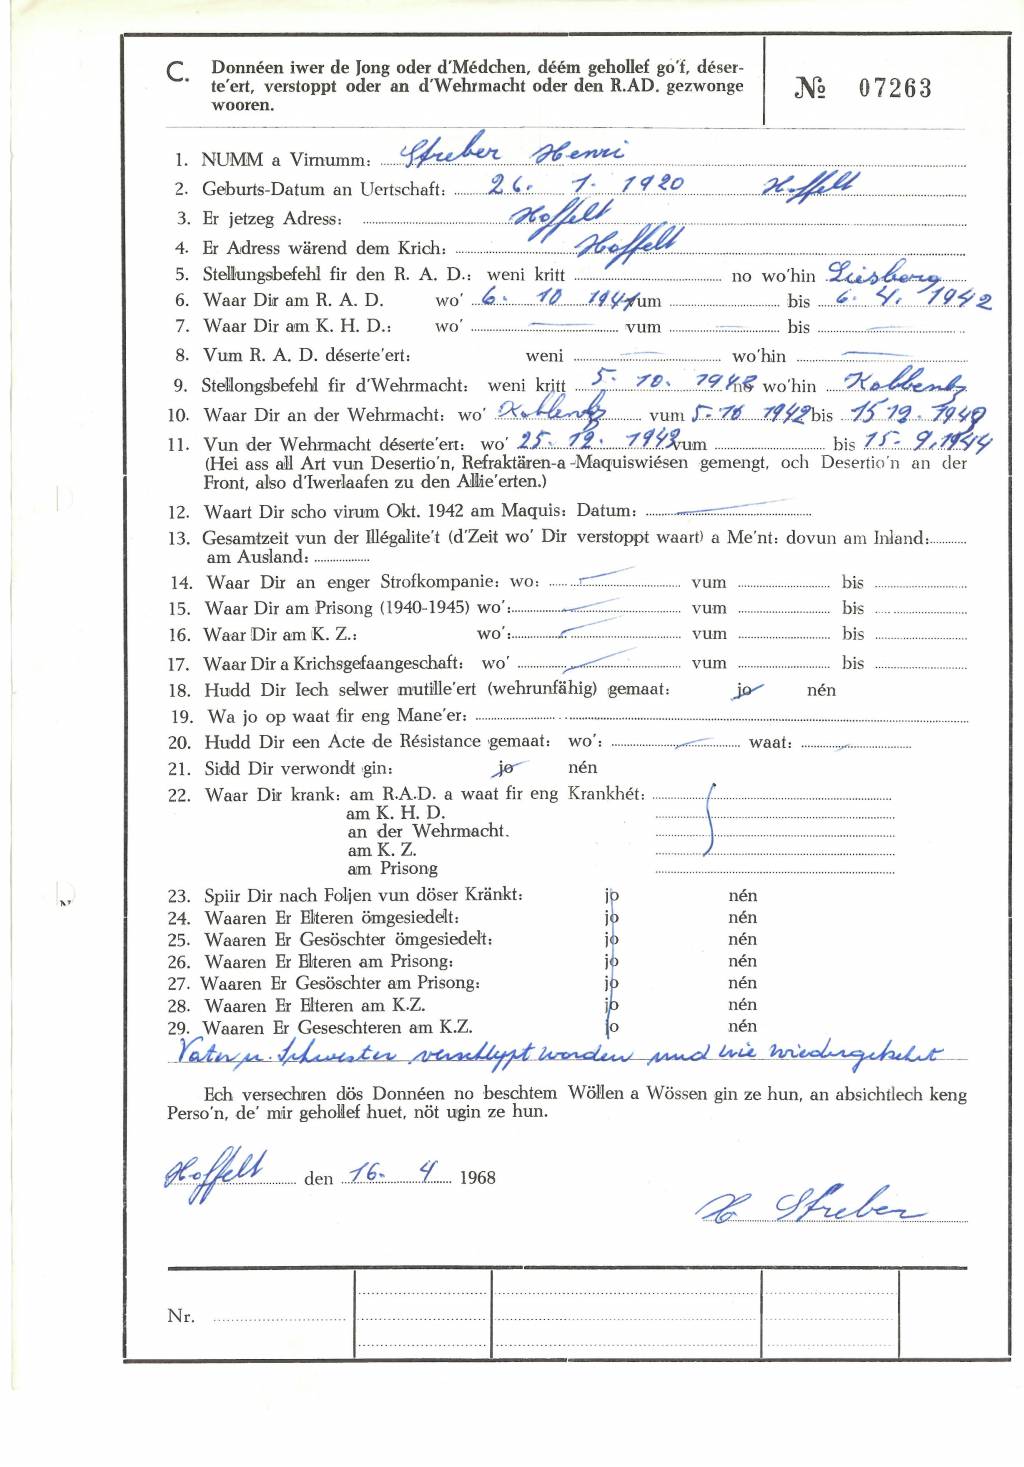 C. Donnéen iwer de Jong oder d'Médchen, déém gehollef go'f, déser-
te'ert, verstoppt oder an d'Wehrmacht oder den R.AD. gezwonge
wooren.
№ 07263
1. NUMM a Virnumm: Streber Henri
2. Geburts-Datum an Uertschaft: 26. 1. 1920 Hoffelt
3. Er jetzeg Adress: Hoffelt
4. Er Adress wärend dem Krich: Hoffelt
5. Stellungsbefehl fir den R. A. D.: weni kritt no wo'hin Liesberg
6. Waar Dir am R. A. D. wo' 6. 10 1941 vum bis 6. 4. 1942
7. Waar Dir am K. H. D.: wo' — vum — bis —
8. Vum R. A. D. déserte'ert: weni — wo'hin —
9. Stellongsbefehl fir d'Wehrmacht: weni kritt 5. 10. 1942 no wo'hin Kobbentz
10. Waar Dir an der Wehrmacht: wo' Koblentz vum 5-10 1942 bis 15 12. 1942
11. Vun der Wehrmacht déserte'ert: wo' 25. 12. 1942 vum bis 15- 9. 1944
(Hei ass all Art vun Desertio'n, Refraktären-a -Maquiswiésen gemengt, och Desertio'n an der
Front, also d'Iwerlaafen zu den Allie'erten.)
12. Waart Dir scho virum Okt. 1942 am Maquis: Datum: —
13. Gesamtzeit vun der Illégalite't (d'Zeit wo' Dir verstoppt waart) a Me'nt: dovun am Inland:
am Ausland:
14. Waar Dir an enger Strofkompanie: wo: — vum bis
15. Waar Dir am Prisong (1940-1945) wo': — vum bis
16. Waar Dir am K. Z.: wo': — vum bis
17. Waar Dir a Krichsgefaangeschaft: wo' — vum bis
18. Hudd Dir Iech selwer mutille'ert (wehrunfähig) gemaat: jo nén
19. Wa jo op waat fir eng Mane'er:
20. Hudd Dir een Acte de Résistance gemaat: wo': — waat: —
21. Sidd Dir verwondt gin: jo nén
22. Waar Dir krank: am R.A.D. a waat fir eng Krankhét:
am K. H. D.
an der Wehrmacht.
am K. Z.
am Prisong
23. Spiir Dir nach Foljen vun döser Kränkt: jo nén
24. Waaren Er Elteren ömgesiedelt: jo nén
25. Waaren Er Gesöschter ömgesiedelt: jo nén
26. Waaren Er Elteren am Prisong: jo nén
27. Waaren Er Gesöschter am Prisong: jo nén
28. Waaren Er Elteren am K.Z. jo nén
29. Waaren Er Geseschteren am K.Z. jo nén
Vater u. Schwester verschleppt worden und nie wiedergekehrt
Ech versechren dös Donnéen no beschtem Wöllen a Wössen gin ze hun, an absichtlech keng
Perso'n, de' mir gehollef huet, nöt ugin ze hun.
Hoffelt den 16. 4 1968
H Streber
Nr.